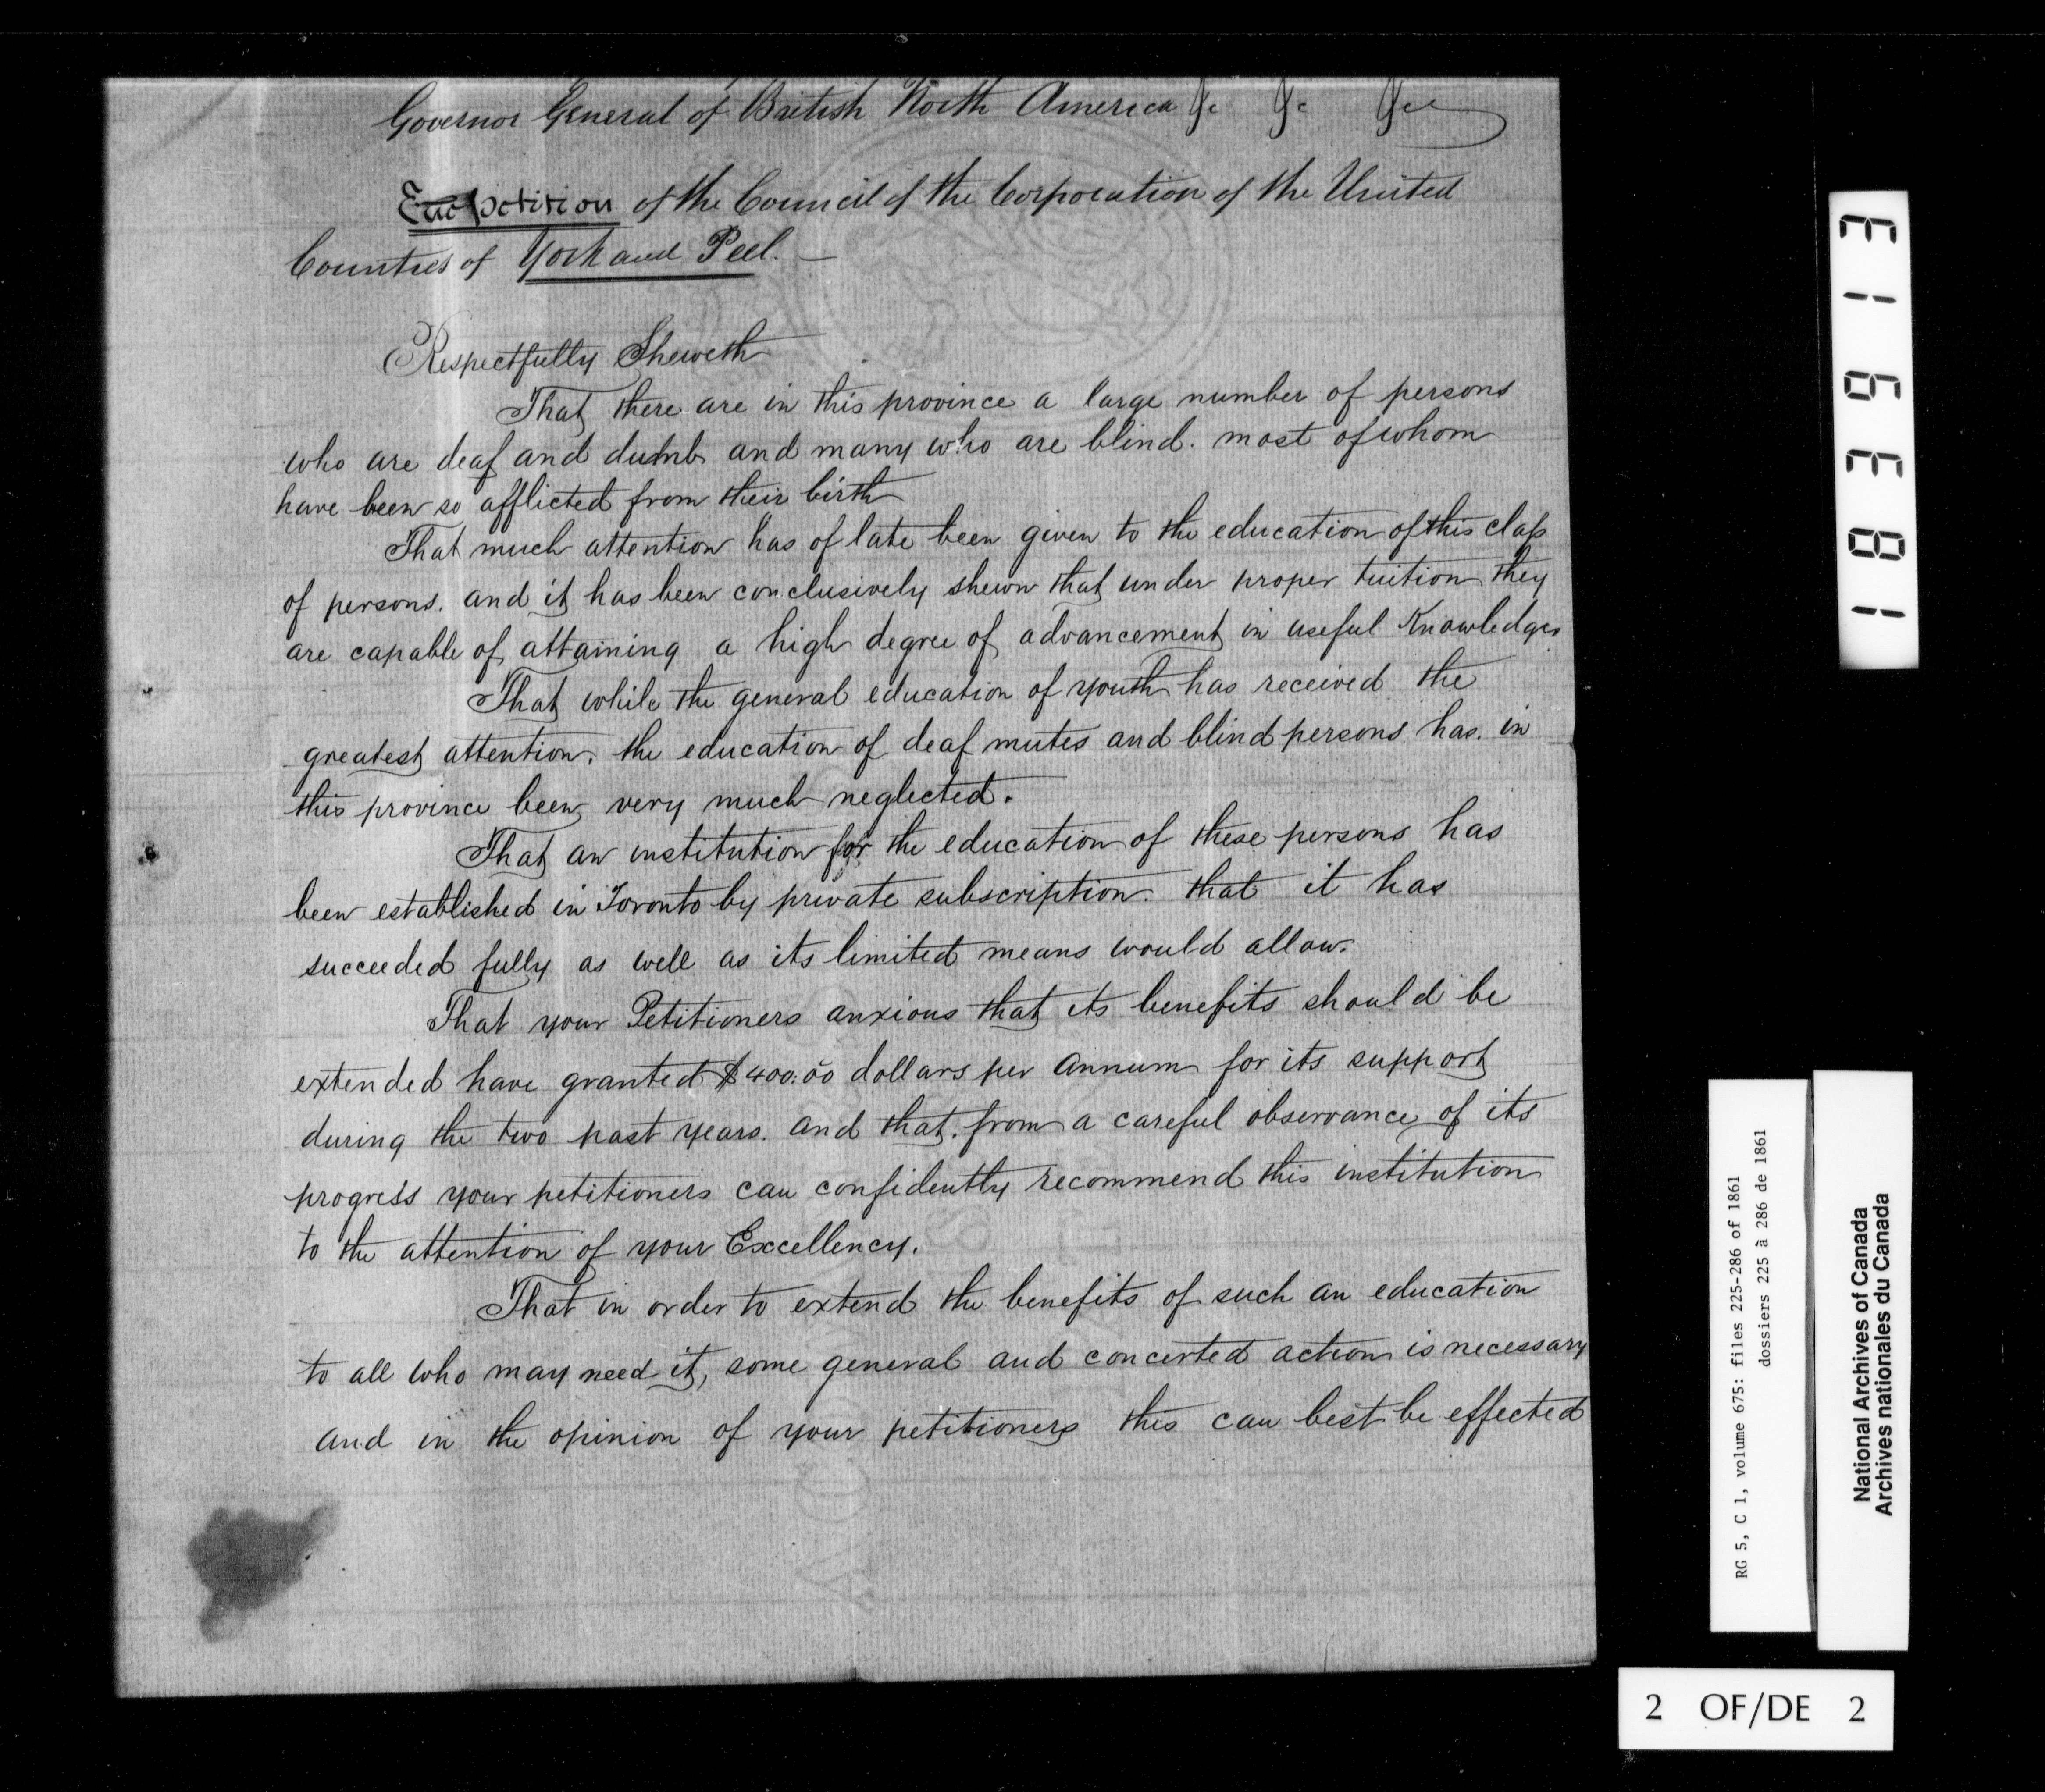 Governor General of British North America &c &c &c
The petition of the Council of the Corporation of the United
Counties of York and Peel. —
Respectfully Sheweth
That there are in this province a large number of persons
who are deaf and dumb and many who are blind. most of whom
have been so afflicted from their birth
That much attention has of late been given to the education of this class
of persons. and it has been conclusively shewn that under proper tuition they
are capable of attaining a high degree of advancement in useful Knowledge
That while the general education of youth has received the
greatest attention, the education of deaf mutes and blind persons has. in
this province been very much neglected.
That an institution for the education of these persons has
been established in Toronto by private subscription. that it has
succeeded fully as well as its limited means would allow.
That your Petitioners anxious that its benefits should be
extended have granted $400.00 dollars per annum for its support
during the two past years. and that. from a careful observance of its
progress your petitioners can confidently recommend this institution
to the attention of your Excellency.
That in order to extend the benefits of such an education
to all who may need it, some general and concerted action is necessary
and in the opinion of your petitioners this can best be effected
183613
RG 5, C 1, volume 675: files 225-286 of 1861
dossiers 225 à 286 de 1861
National Archives of Canada
Archives nationales du Canada
2 OF/DE 2